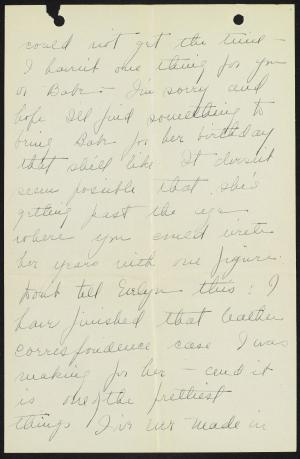 could not get the time -
I haven't one thing for you
or Babs - I'm sorry and
hope I'll find something to
bring Bab for her birthday
that she'll like. It doesn't
seem possible that she's
getting past the age
where you could write
her years with one figure.
Don't tell Evelyn this: I
have finished that leather
correspondence case I was
making for her - and it
is one of the prettiest
things I've ever made in